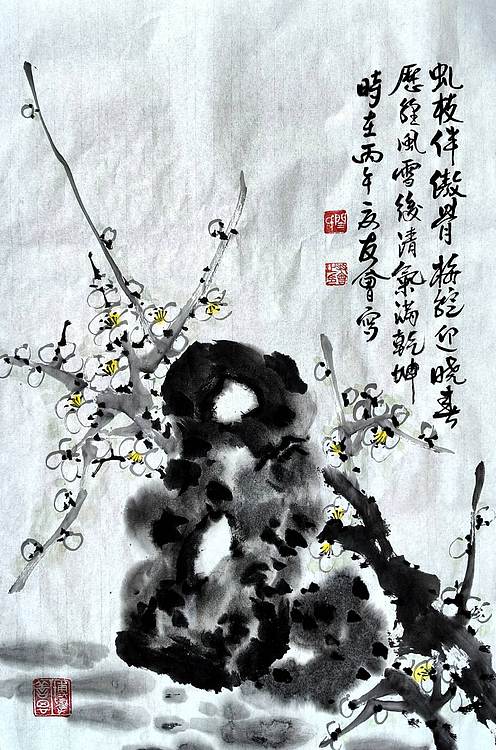 虬枝伴傲骨梅綻迎曉春
歷經風雪後清氣滿乾坤
時在丙午
友會寫